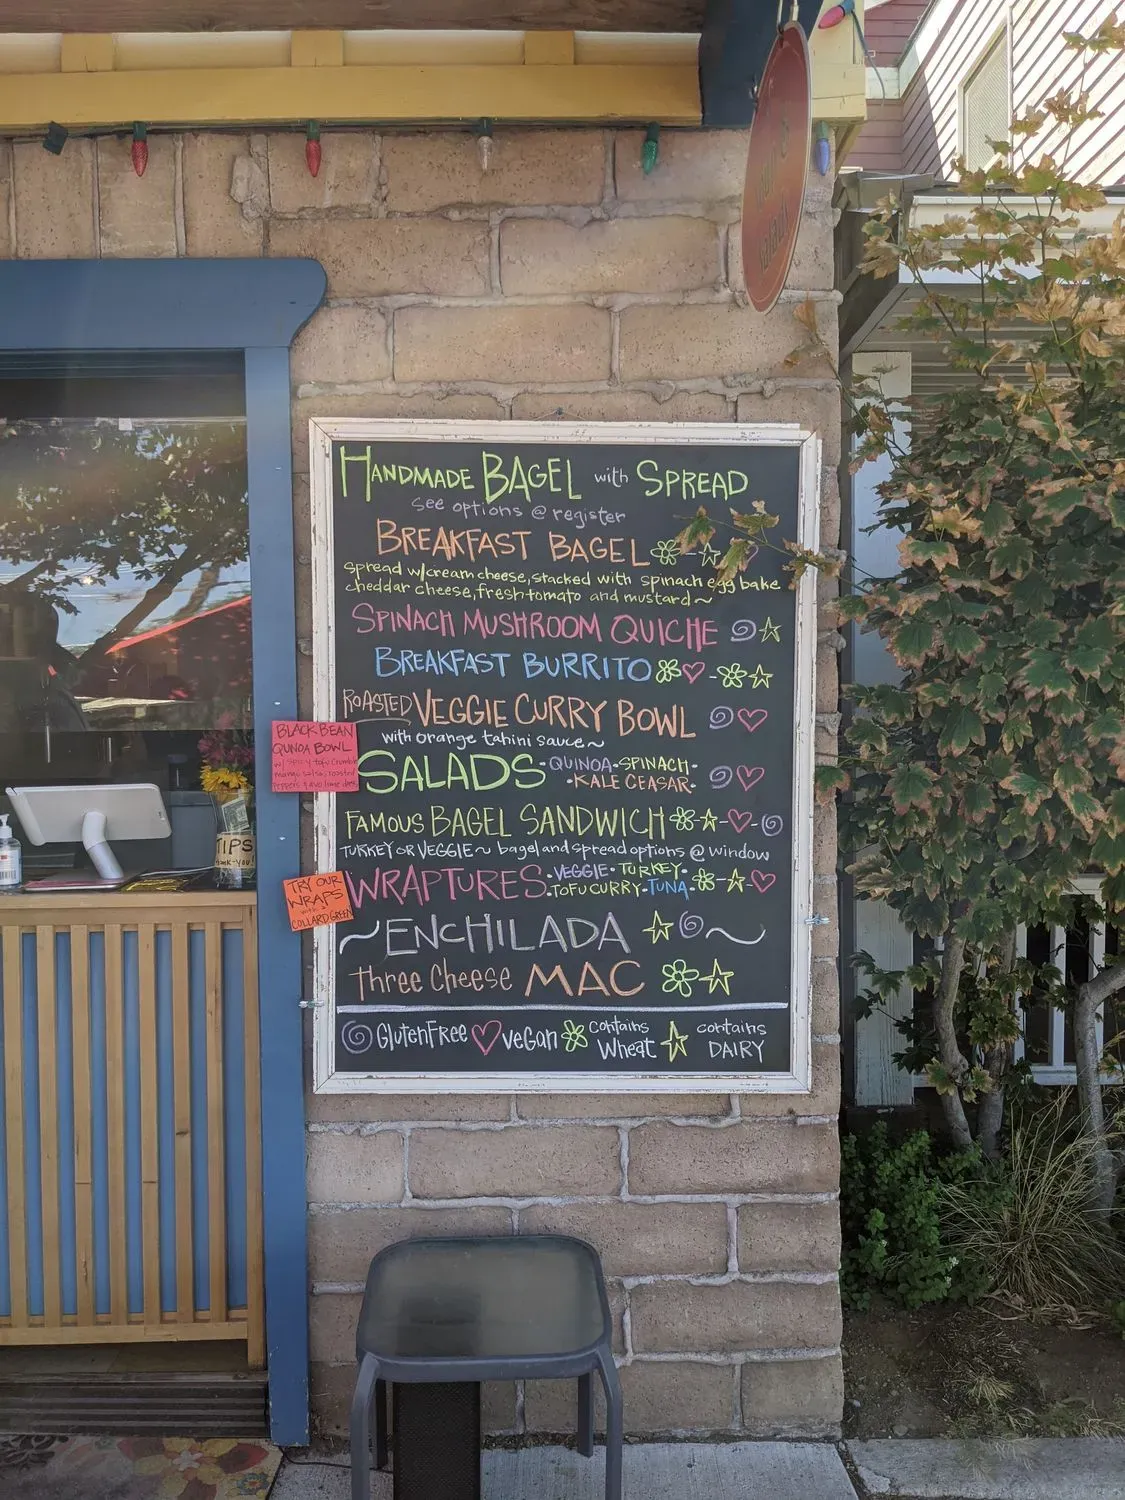 HANDMADE BAGEL with SPREAD
see options @ register
BREAKFAST BAGEL
spread w/cream cheese, stacked with spinach egg bake
cheddar cheese, fresh tomato and mustard~
SPINACH MUSHROOM QUICHE
BREAKFAST BURRITO
ROASTED VEGGIE CURRY BOWL
with orange tahini sauce~
SALADS · QUINOA · SPINACH ·
· KALE CEASAR ·
FAMOUS BAGEL SANDWICH
TURKEY OR VEGGIE~ bagel and spread options @ window
WRAPTURES · VEGGIE · TURKEY ·
· TOFU CURRY · TUNA ·
~ENCHILADA~
three cheese MAC
GlutenFree vegan contains Wheat contains DAIRY
BLACK BEAN
QUINOA BOWL
w/ spicy tofu crumble
mango salsa, roasted
peppers
TRY OUR
WRAPS
with a
COLLARD GREEN
TIPS